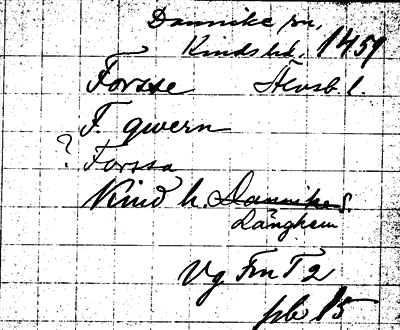 Dannike sn,
Kinds hd, 1459
Forsse Älvsb. l.
F. qwern
? Forssa
Kind h. Dannike s.
Länghem
Vg Fm T 2
sb 15